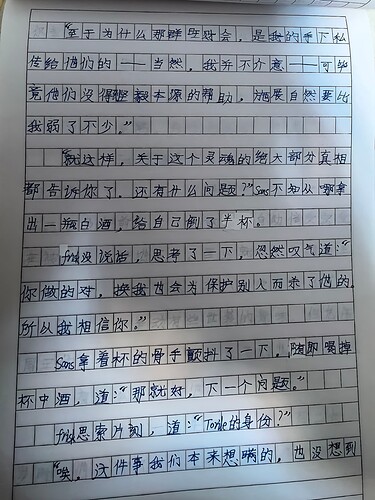 “至于为什么那群玩会，是我的手下私
传给他们的——当然，我并不介意——可毕
竟他们没得到毅本源的帮助，施展自然要比
我弱了不少。”
“就这样，关于这个灵魂的绝大部分真相
都告诉你了，还有什么问题？”Sans不知从哪拿
出一瓶白酒，给自己倒了半杯。
frisk没说话，思考了一下，忽然叹气道：“
你做的对，换我也会为保护别人而杀了他的，
所以我相信你。”
Sans拿着杯的骨手颤抖了一下，随即喝掉
杯中酒，道：“那就好，下一个问题。”
frisk思索片刻，道：“Toriel的身份？”
“唉，这件事我们本来想瞒的，也没想到